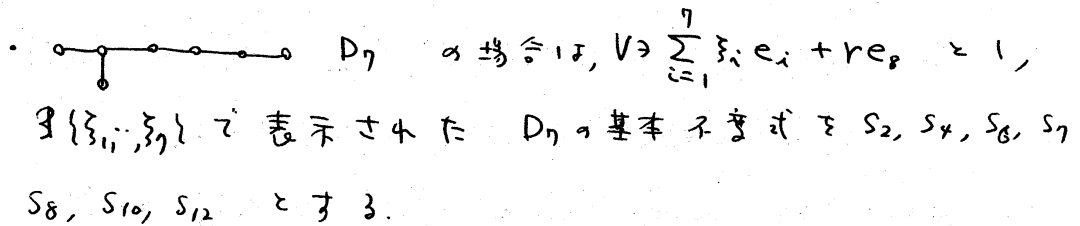 ・ D₇ の場合は, V∋ \sum_{i=1}^{7} ξ_i e_i + re₈ とし,
{ξ₁, ‥, ξ₇} で表示された D₇の基本不変式を S₂, S₄, S₆, S₇
S₈, S₁₀, S₁₂ とする.